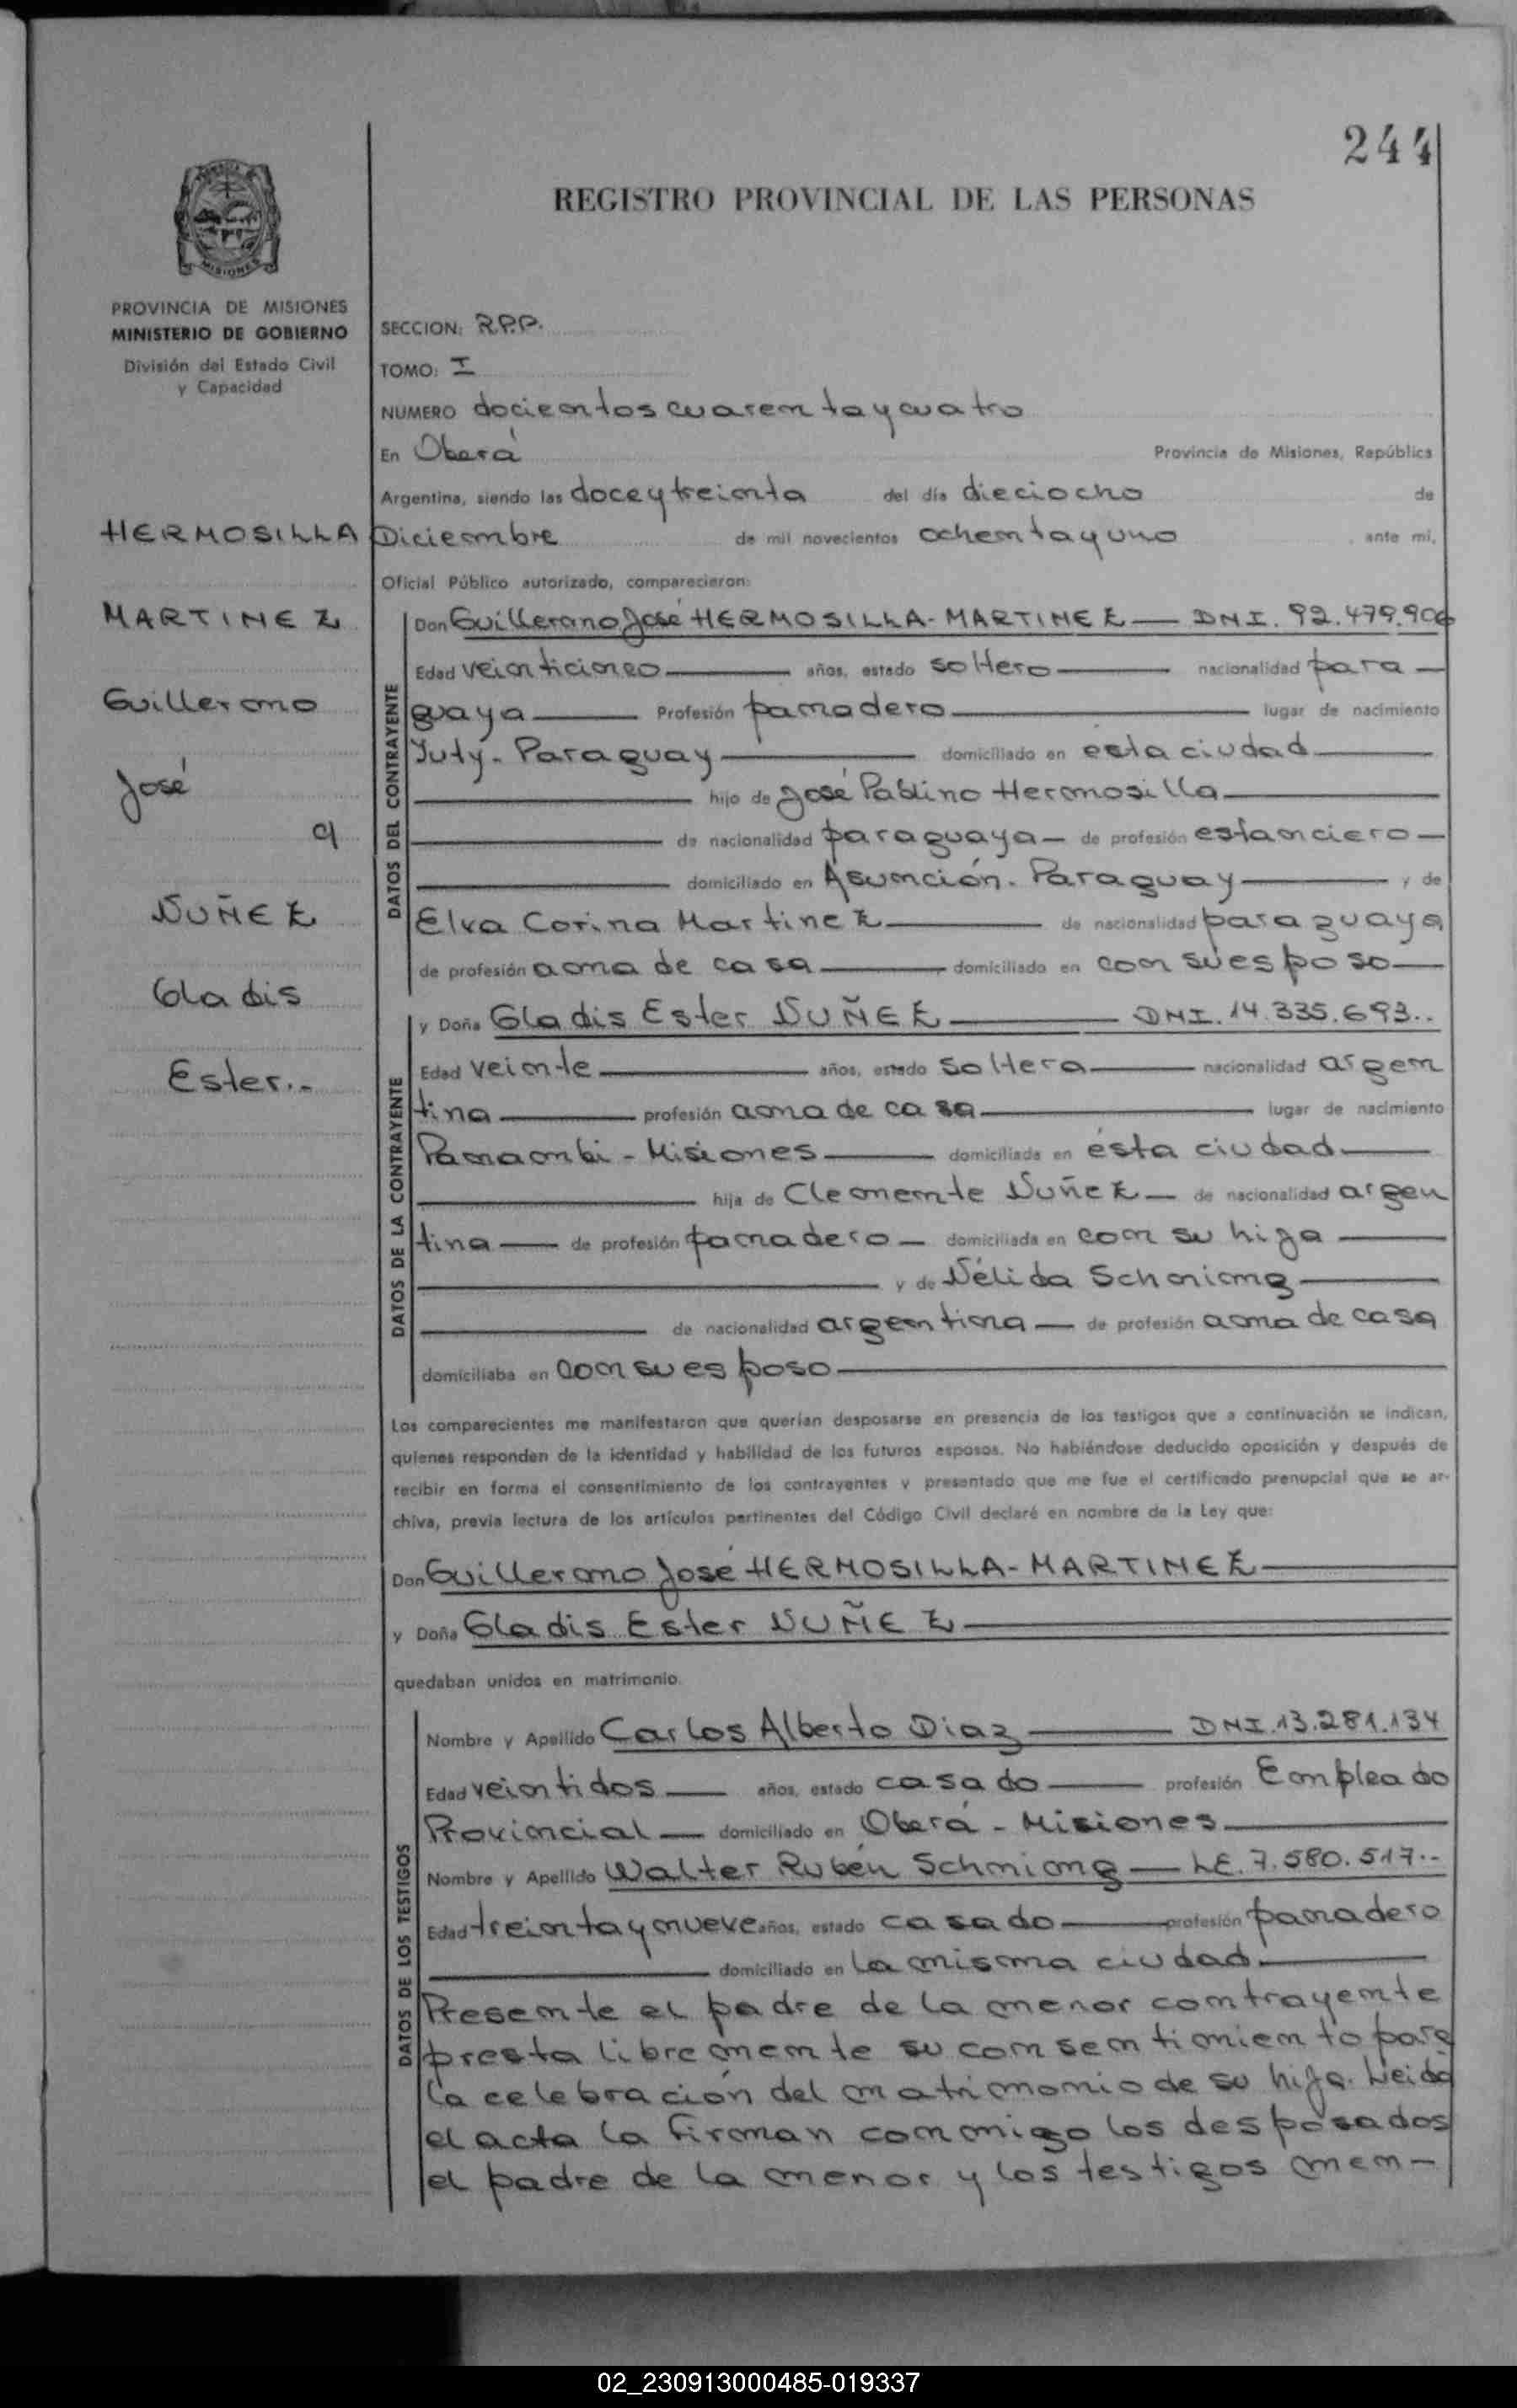 244
REGISTRO PROVINCIAL DE LAS PERSONAS
MISIONES
PROVINCIA DE MISIONES
MINISTERIO DE GOBIERNO
División del Estado Civil
y Capacidad
HERMOSILLA
MARTINEZ
Guillermo
José
c/
NUÑEZ
Gladis
Ester.-
SECCION: R.P.P.
TOMO: I
NUMERO docientos cuarenta y cuatro
En Oberá Provincia de Misiones, República
Argentina, siendo las doce y treinta del día dieciocho de
Diciembre de mil novecientos ochenta y uno, ante mí,
Oficial Público autorizado, comparecieron:
DATOS DEL CONTRAYENTE
Don Guillermo José HERMOSILLA-MARTINEZ — DNI. 92.479.906
Edad veinticinco — años, estado soltero — nacionalidad para —
guaya — Profesión panadero — lugar de nacimiento
Yuty - Paraguay — domiciliado en esta ciudad —
— hijo de José Pablino Hermosilla —
— de nacionalidad paraguaya — de profesión estanciero —
— domiciliado en Asunción - Paraguay — y de
Elva Corina Martinez — de nacionalidad paraguaya
de profesión ama de casa — domiciliado en con su esposo —
DATOS DE LA CONTRAYENTE
y Doña Gladis Ester NUÑEZ — DNI. 14.335.693..
Edad veinte — años, estado soltera — nacionalidad argen
tina — profesión ama de casa — lugar de nacimiento
Panambi - Misiones — domiciliada en ésta ciudad —
— hija de Clemente Nuñez — de nacionalidad argen
tina — de profesión panadero — domiciliada en con su hija —
— y de Nélida Schoning —
— de nacionalidad argentina — de profesión ama de casa
domiciliaba en con su esposo —
Los comparecientes me manifestaron que querían desposarse en presencia de los testigos que a continuación se indican,
quienes responden de la identidad y habilidad de los futuros esposos. No habiéndose deducido oposición y después de
recibir en forma el consentimiento de los contrayentes y presentado que me fue el certificado prenupcial que se ar-
chiva, previa lectura de los artículos pertinentes del Código Civil declaré en nombre de la Ley que:
Don Guillermo José HERMOSILLA-MARTINEZ —
y Doña Gladis Ester NUÑEZ —
quedaban unidos en matrimonio.
DATOS DE LOS TESTIGOS
Nombre y Apellido Carlos Alberto Diaz — DNI. 13.281.134
Edad veintidos — años, estado casado — profesión Empleado
Provincial — domiciliado en Oberá - Misiones —
Nombre y Apellido Walter Rubén Schoning — LE. 7.580.517.-
Edad treinta y nueve años, estado casado — profesión panadero
— domiciliado en la misma ciudad. —
Presente el padre de la menor contrayente
presta libremente su consentimiento para
la celebración del matrimonio de su hija. Leida
el acta la firman conmigo los desposados
el padre de la menor y los testigos men-
02_230913000485-019337